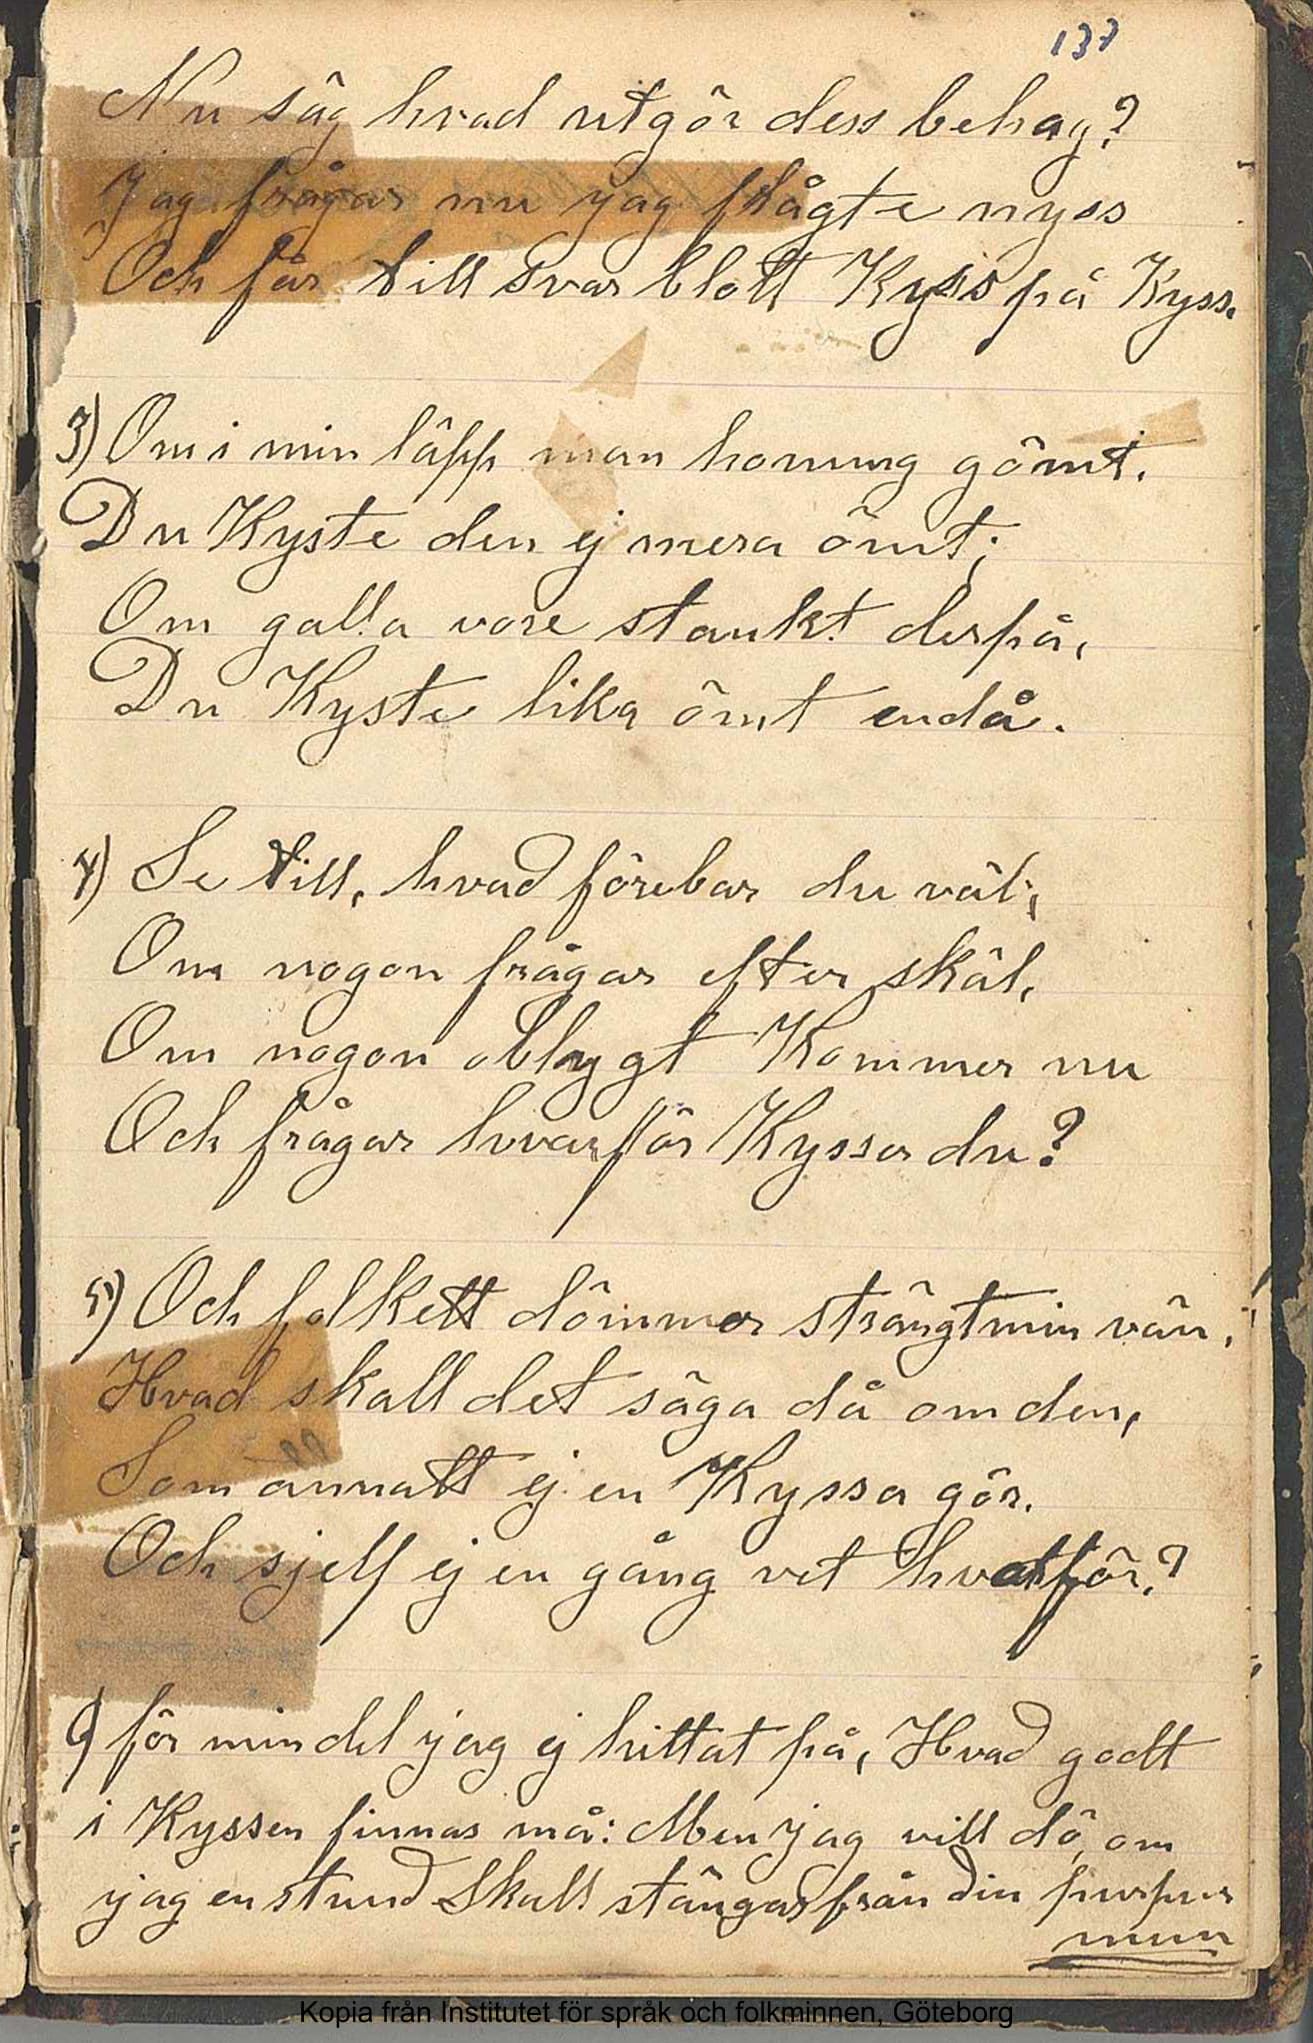 137
Nu säg hvad utgör dess behag?
Jag frågar nu jag frågte nyss
Och får till svar blott Kyss på Kyss.
3) Om i min läpp man honung gömt.
Du Kyste den ej mera ömt;
Om galla vore stankt derpå,
Du Kyste lika ömt endå.
4) Se till, hvad förebar du väl;
Om nogon frågar efter skäl,
Om nogon oblygt Kommer nu
Och frågar hvarför Kysser du?
5) Och folkett dömmer strängt min vän,
Hvad skall det säga då om den,
Som annatt ej en Kyssa gör.
Och sjelf ej en gång vet hvatför?
6) för min del jag ej hittat på, Hvad godt
i Kyssen finnas må: Men jag vill dö, om
jag en stund Skall stängas från din purpur
mun
Kopia från Institutet för språk och folkminnen, Göteborg